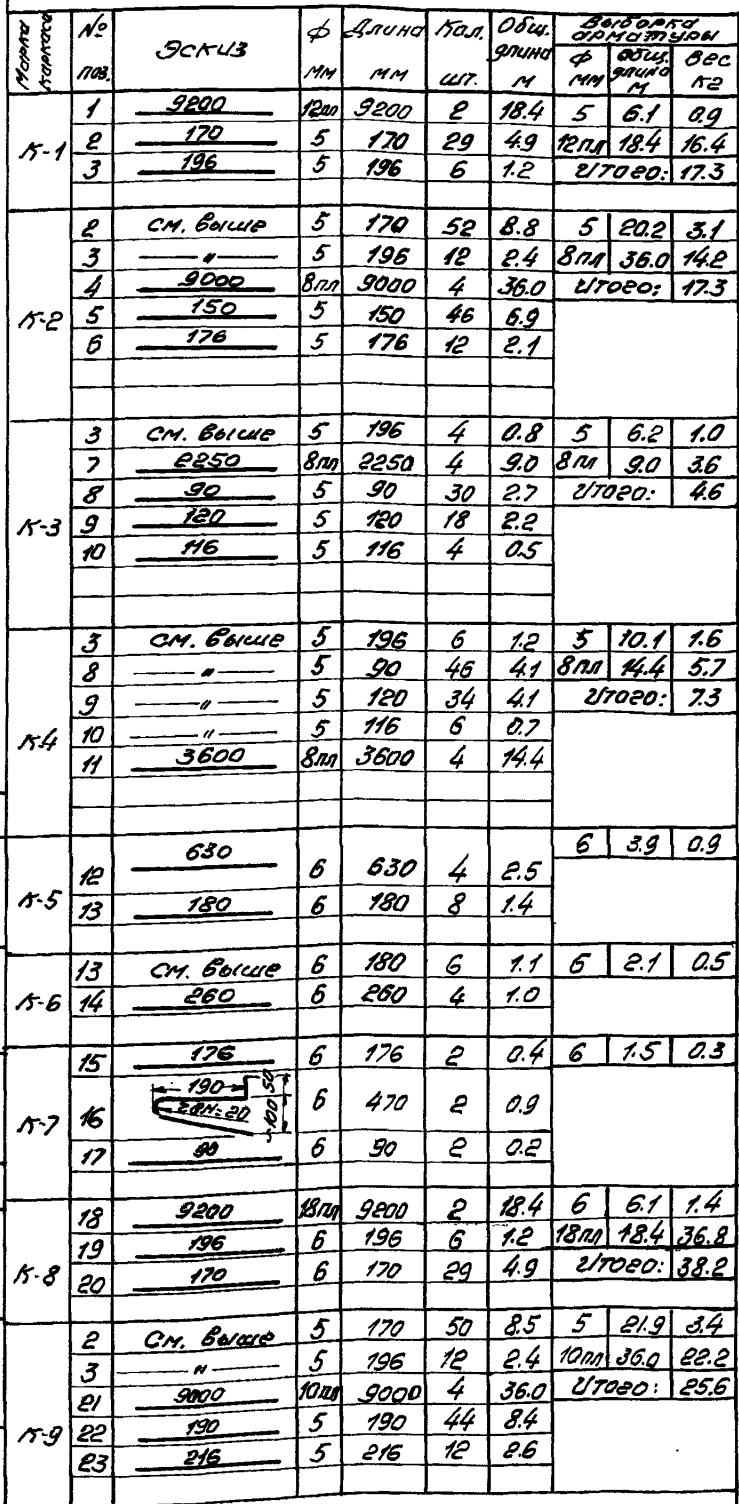 Марка каркаса № поз. Эскиз ф мм Длина мм Кол. шт. Общ. длина м Выборка арматуры
ф мм общ. длина м вес кг
К-1
1 9200 12пл 9200 2 18.4 5 6.1 0.9
2 170 5 170 29 4.9 12пл 18.4 16.4
3 196 5 196 6 1.2 Итого: 17.3
К-2
2 См. выше 5 170 52 8.8 5 20.2 3.1
3 — " — 5 196 12 2.4 8пл 36.0 14.2
4 9000 8пл 9000 4 36.0 Итого: 17.3
5 150 5 150 46 6.9
6 176 5 176 12 2.1
К-3
3 См. выше 5 196 4 0.8 5 6.2 1.0
7 2250 8пл 2250 4 9.0 8пл 9.0 3.6
8 90 5 90 30 2.7 Итого: 4.6
9 120 5 120 18 2.2
10 116 5 116 4 0.5
К4
3 См. выше 5 196 6 1.2 5 10.1 1.6
8 — " — 5 90 46 4.1 8пл 14.4 5.7
9 — " — 5 120 34 4.1 Итого: 7.3
10 — " — 5 116 6 0.7
11 3600 8пл 3600 4 14.4
К-5
6 3.9 0.9
12 630 6 630 4 2.5
13 180 6 180 8 1.4
К-6
13 См. выше 6 180 6 1.1 6 2.1 0.5
14 260 6 260 4 1.0
К-7
15 176 6 176 2 0.4 6 1.5 0.3
16 190 50 =20 ~100 6 470 2 0.9
17 90 6 90 2 0.2
К-8
18 9200 18пл 9200 2 18.4 6 6.1 1.4
19 196 6 196 6 1.2 18пл 18.4 36.8
20 170 6 170 29 4.9 Итого: 38.2
К-9
2 См. выше 5 170 50 8.5 5 21.9 3.4
3 — " — 5 196 12 2.4 10пл 36.0 22.2
21 9000 10пл 9000 4 36.0 Итого: 25.6
22 190 5 190 44 8.4
23 216 5 216 12 2.6